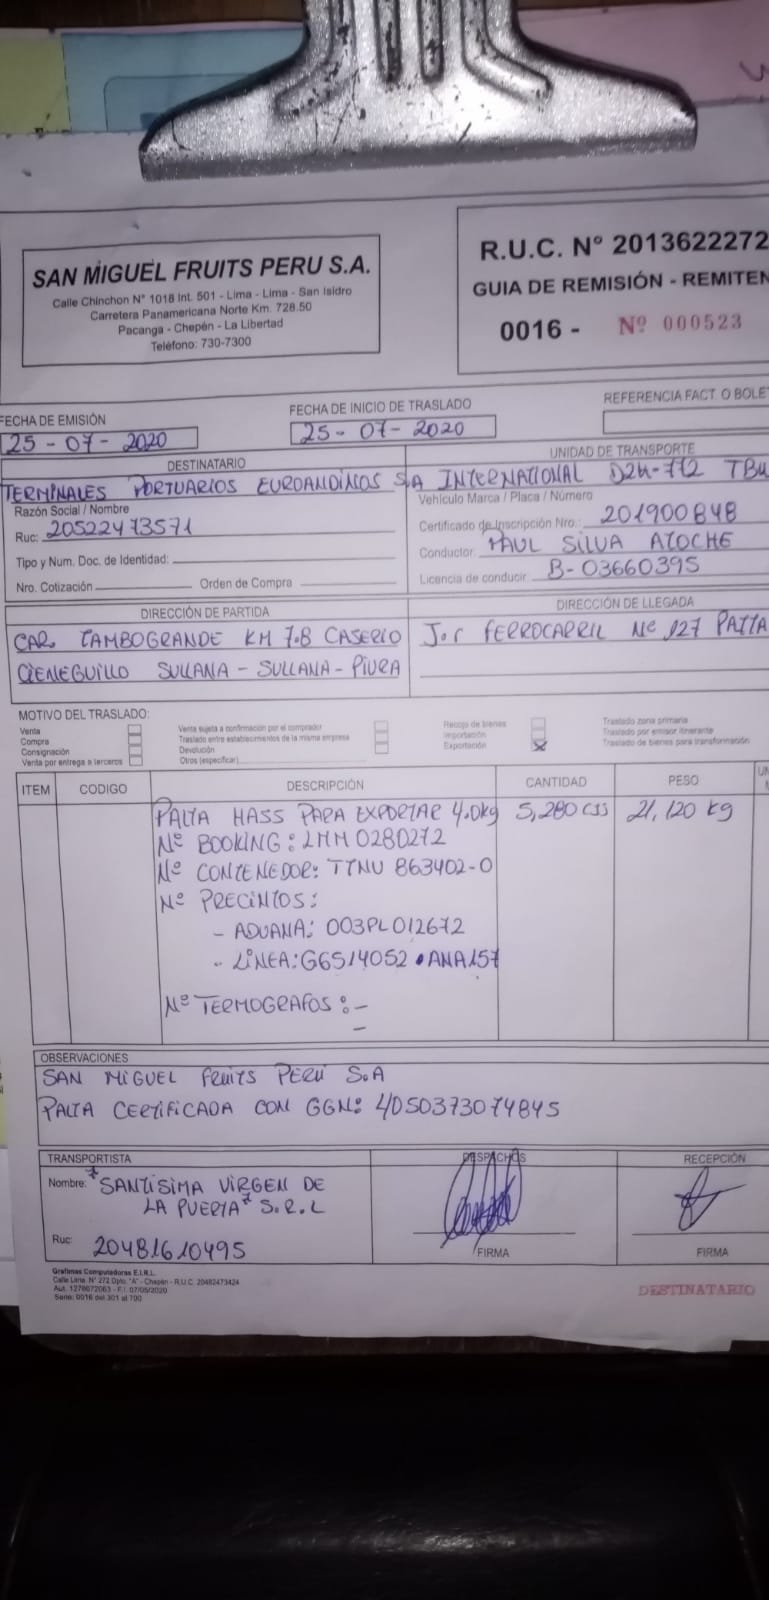 SAN MIGUEL FRUITS PERU S.A.
Calle Chinchon N° 1018 Int. 501 - Lima - Lima - San Isidro
Carretera Panamericana Norte Km. 728.50
Pacanga - Chepén - La Libertad
Teléfono: 730-7300
R.U.C. N° 2013622272
GUIA DE REMISIÓN - REMITEN
0016 - Nº 000523
FECHA DE EMISIÓN
25-07-2020
FECHA DE INICIO DE TRASLADO
25-07-2020
REFERENCIA FACT. O BOLET
DESTINATARIO
TERMINALES PORTUARIOS EUROANDINOS S.A
Razón Social / Nombre
Ruc: 20522473571
Tipo y Num. Doc. de Identidad:
Nro. Cotización Orden de Compra
UNIDAD DE TRANSPORTE
INTERNATIONAL
Vehículo Marca / Placa / Número
Certificado de Inscripción Nro.: 201900848
Conductor: PAUL SILVA ATOCHE
Licencia de conducir B-03660395
DIRECCIÓN DE PARTIDA
CAR. TAMBOGRANDE KM 7.8 CASERIO
CIENEGUILLO SULLANA - SULLANA - PIURA
DIRECCIÓN DE LLEGADA
FERROCARRIL Nº 127 PAITA
MOTIVO DEL TRASLADO:
Venta
Compra
Consignación
Venta por entrega a terceros
Venta sujeta a confirmación por el comprador
Traslado entre establecimientos de la misma empresa
Devolución
Otros (especificar)
Recojo de bienes
Importación
Exportación X
Traslado zona primaria
Traslado por emisor itinerante
Traslado de bienes para transformación
ITEM CODIGO DESCRIPCIÓN CANTIDAD PESO
PALTA HASS PARA EXPORTAR 4.0kg 5,280 CJS 21,120 kg
Nº BOOKING: LMM0280272
Nº CONTENEDOR: TTNU 863402-0
Nº PRECINTOS:
- ADUANA: 003PL012672
- LÍNEA: G6514052 • ANA157
Nº TERMOGRAFOS: -
-
OBSERVACIONES
SAN MIGUEL FRUITS PERU S.A
PALTA CERTIFICADA CON GGN: 4050373074845
TRANSPORTISTA
Nombre: "SANTISIMA VIRGEN DE
LA PUERTA" S.R.L
Ruc: 20481610495
DESPACHOS
FIRMA
RECEPCIÓN
FIRMA
Grafimas Computadoras E.I.R.L.
Calle Lima N° 272 Dpto. "A" - Chepén - R.U.C. 20482473424
Aut. 1276072063 - F.I. 07/05/2020
Serie: 0016 del 301 al 700
DESTINATARIO